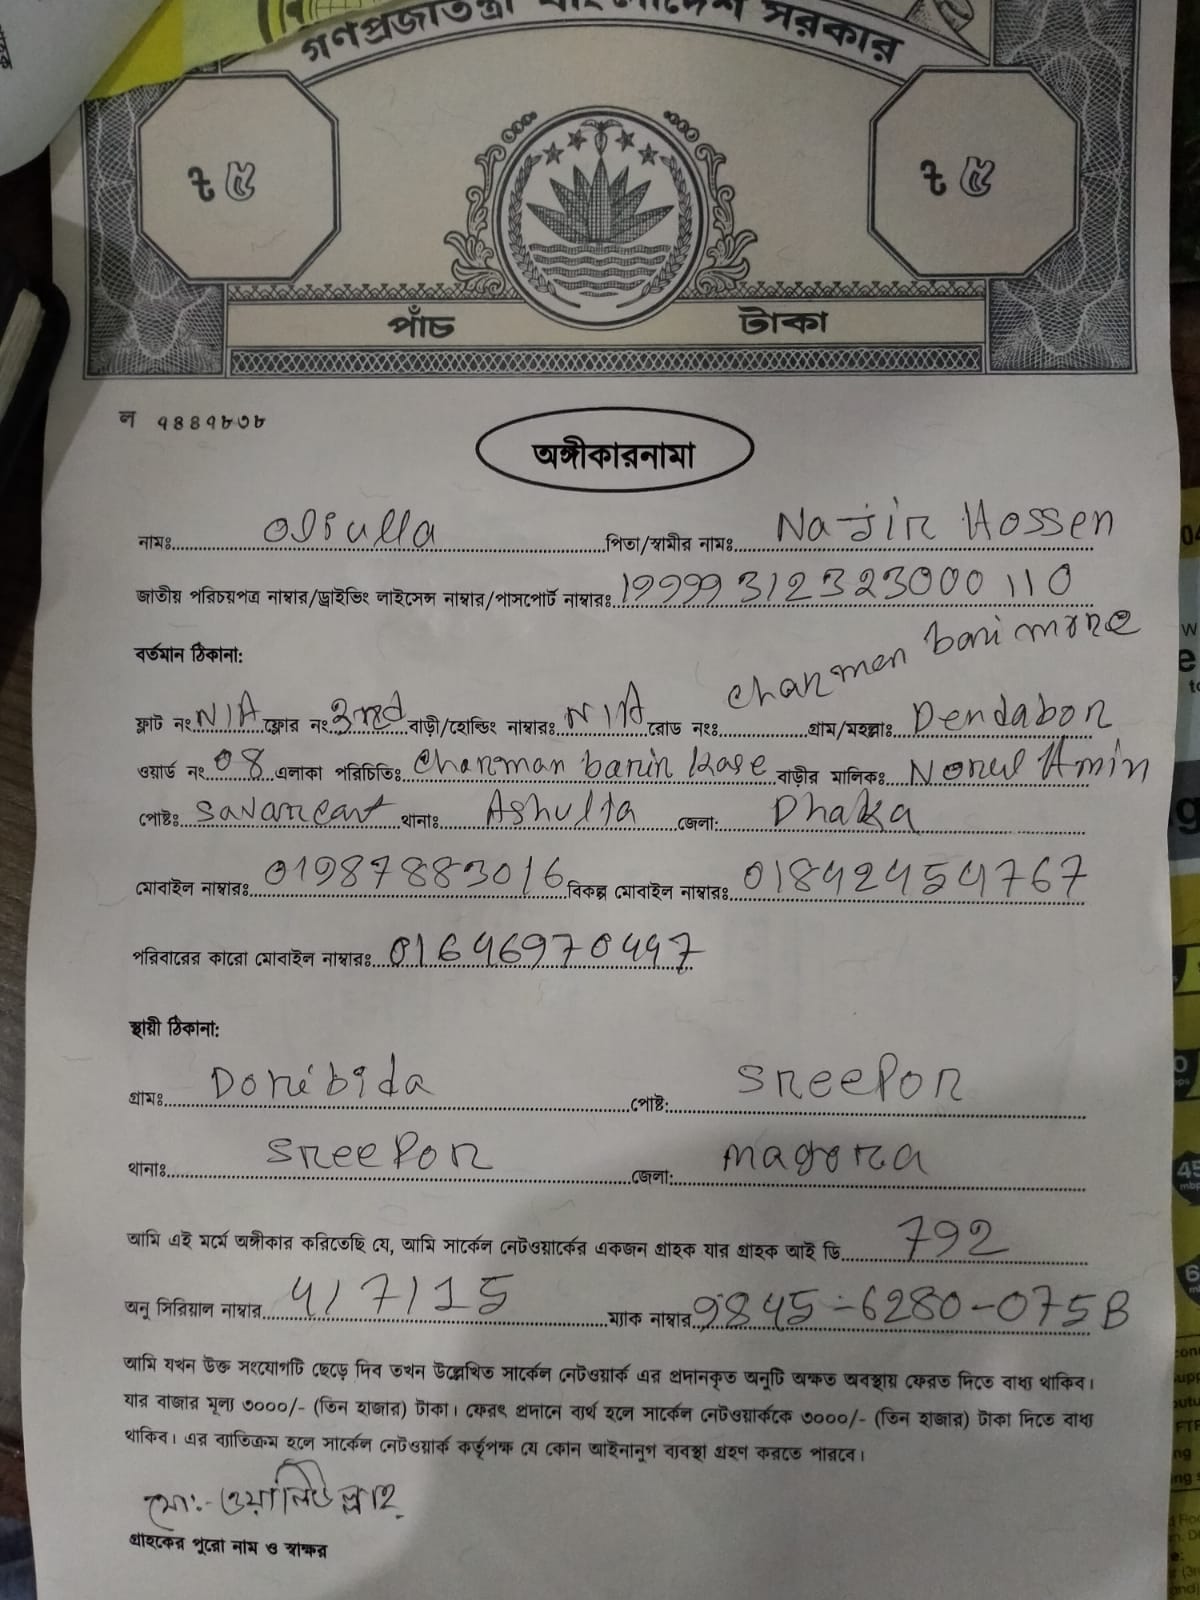 গণপ্রজাতন্ত্রী বাংলাদেশ সরকার
৳ ৫ ৳ ৫
পাঁচ টাকা
ল ৭৪৪৭৮৩৮
অঙ্গীকারনামা
নামঃ Oliulla পিতা/স্বামীর নামঃ Najir Hossen
জাতীয় পরিচয়পত্র নাম্বার/ড্রাইভিং লাইসেন্স নাম্বার/পাসপোর্ট নাম্বারঃ 19999312323000110
বর্তমান ঠিকানা:
ফ্লাট নং N/A ফ্লোর নং 3rd বাড়ী/হোল্ডিং নাম্বারঃ N/A রোড নংঃ Charman bari more গ্রাম/মহল্লাঃ Dendabor
ওয়ার্ড নং 08 এলাকা পরিচিতিঃ Charman barir kase বাড়ীর মালিকঃ Norul Amin
পোষ্টঃ Savarcant থানাঃ Ashulia জেলা: Dhaka
মোবাইল নাম্বারঃ 01987883016 বিকল্প মোবাইল নাম্বারঃ 01842454767
পরিবারের কারো মোবাইল নাম্বারঃ 01646970447
স্থায়ী ঠিকানা:
গ্রামঃ Doribida পোষ্ট: Sreepor
থানাঃ Sreepor জেলা: magora
আমি এই মর্মে অঙ্গীকার করিতেছি যে, আমি সার্কেল নেটওয়ার্কের একজন গ্রাহক যার গ্রাহক আই ডি 792
অনু সিরিয়াল নাম্বার 4/7/15 ম্যাক নাম্বার 9845-6280-075B
আমি যখন উক্ত সংযোগটি ছেড়ে দিব তখন উল্লেখিত সার্কেল নেটওয়ার্ক এর প্রদানকৃত অনুটি অক্ষত অবস্থায় ফেরত দিতে বাধ্য থাকিব।
যার বাজার মূল্য ৩০০০/- (তিন হাজার) টাকা। ফেরৎ প্রদানে ব্যর্থ হলে সার্কেল নেটওয়ার্ককে ৩০০০/- (তিন হাজার) টাকা দিতে বাধ্য
থাকিব। এর ব্যতিক্রম হলে সার্কেল নেটওয়ার্ক কর্তৃপক্ষ যে কোন আইনানুগ ব্যবস্থা গ্রহণ করতে পারবে।
মো:- ওয়ালিউল্লাহ
গ্রাহকের পুরো নাম ও স্বাক্ষর